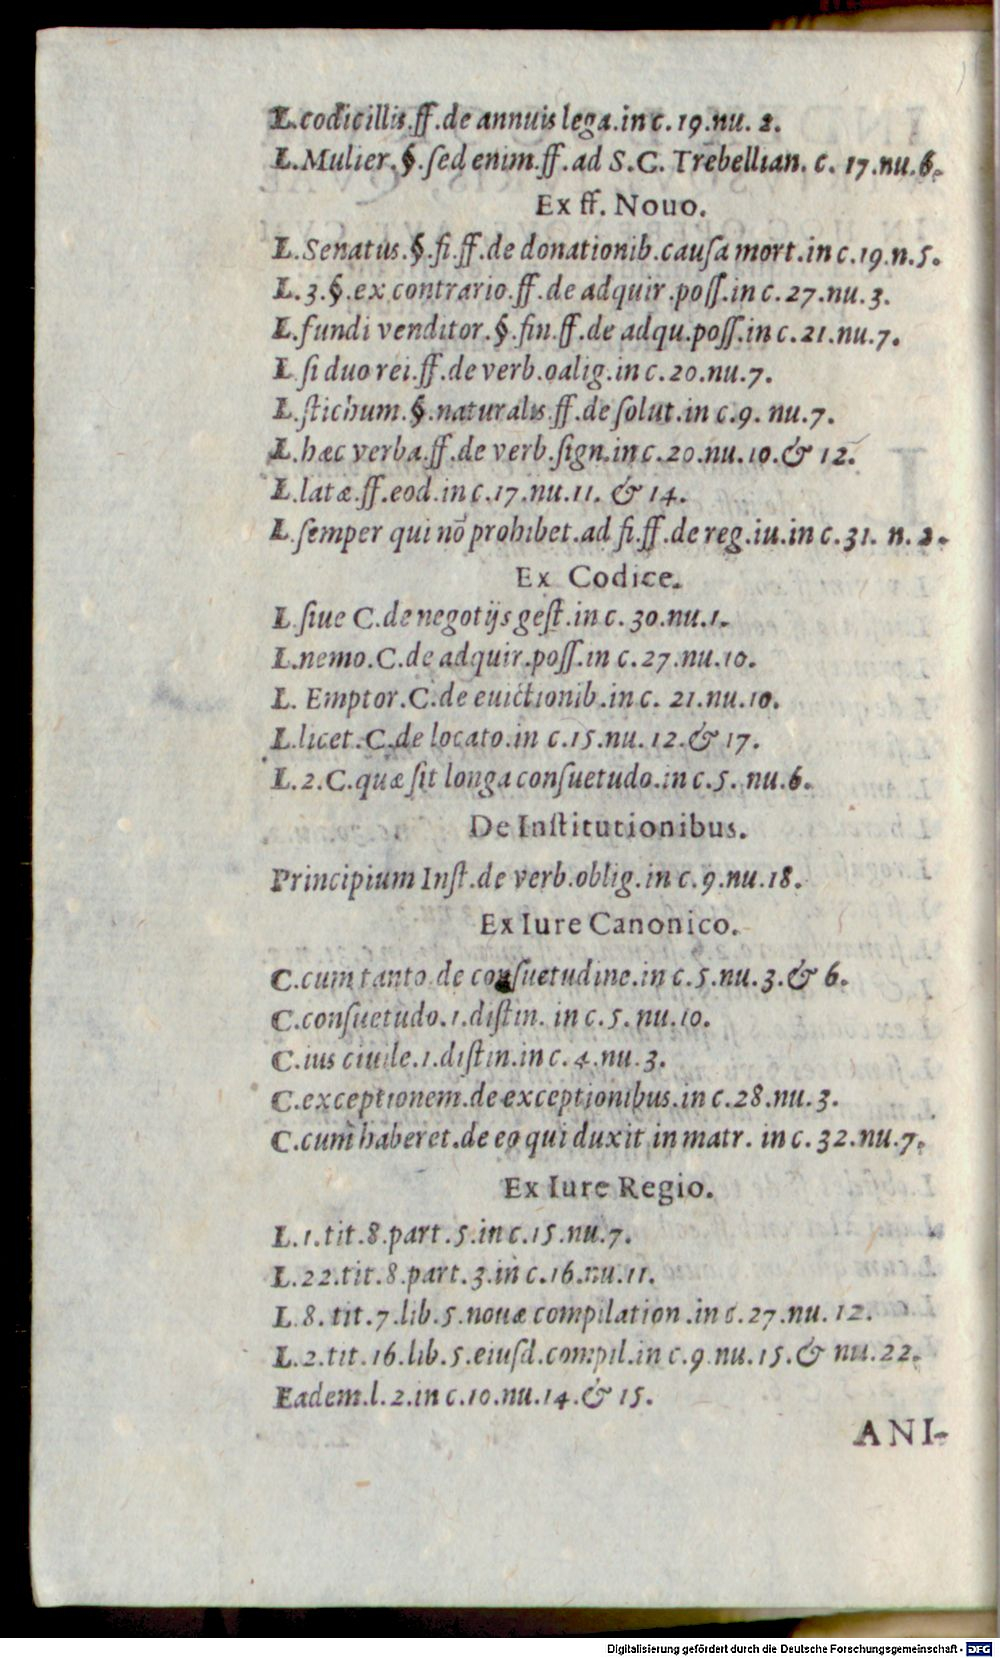 L.codicillis.ff.de annuis lega.in c.19.nu.2.
L.Mulier.§.ſed enim.ff.ad S.C. Trebellian. c. 17.nu.6.
Ex ff. Nouo.
L.Senatus.§.fi.ff.de donationib.cauſa mort.in c.19.n.5.
L.3.§.ex contrario.ff.de adquir.poſſ.in c.27.nu.3.
L.fundi venditor.§.fin.ff.de adqu.poſſ.in c.21.nu.7.
L.ſi duo rei.ff.de verb.oalig.in c.20.nu.7.
L.ſtichum.§.naturalis.ff.de ſolut.in c.9. nu.7.
L.hæc verba.ff.de verb.ſign.in c.20.nu.10.& 12.
L.latæ.ff.eod.in c.17.nu.11. & 14.
L.ſemper qui nō prohibet.ad fi.ff.de reg.iu.in c.31. n.2.
Ex Codice.
L.ſiue C.de negotijs geſt.in c.30.nu.1.
L.nemo.C.de adquir.poſſ.in c.27.nu.10.
L. Emptor.C.de euictionib.in c. 21.nu.10.
L.licet.C.de locato.in c.15.nu.12.& 17.
L.2.C.quæ ſit longa conſuetudo.in c.5. nu.6.
De Inſtitutionibus.
Principium Inſt.de verb.oblig.in c.9.nu.18.
Ex Iure Canonico.
C.cum tanto de conſuetudine.in c.5.nu.3.& 6.
C.conſuetudo.1.diſtin. in c.5.nu.10.
C.ius ciuile.1.diſtin.in c.4.nu.3.
C.exceptionem.de exceptionibus.in c.28.nu.3.
C.cum haberet.de eo qui duxit in matr. in c.32.nu.7.
Ex Iure Regio.
L.1.tit.8.part.5.in c.15.nu.7.
L.22.tit.8.part.3.in c.16.nu.11.
L.8.tit.7.lib.5.nouæ compilation.in c.27.nu.12.
L.2.tit.16.lib.5.eiuſd.compil.in c.9.nu.15.& nu.22.
Eadem.l.2.in c.10.nu.14.& 15.
ANI-
Digitalisierung gefördert durch die Deutsche Forschungsgemeinschaft - DFG